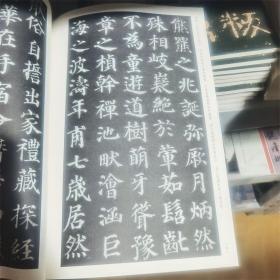 熊羆之兆誕弥厥月炳然
殊相岐嶷絕於葷茹髫齔
不為童遊道樹萌牙聳豫
章之楨幹禪池畎澮涵巨
海之波濤年甫七歲居然
俗自誓出家禮藏探經
華在手宿命